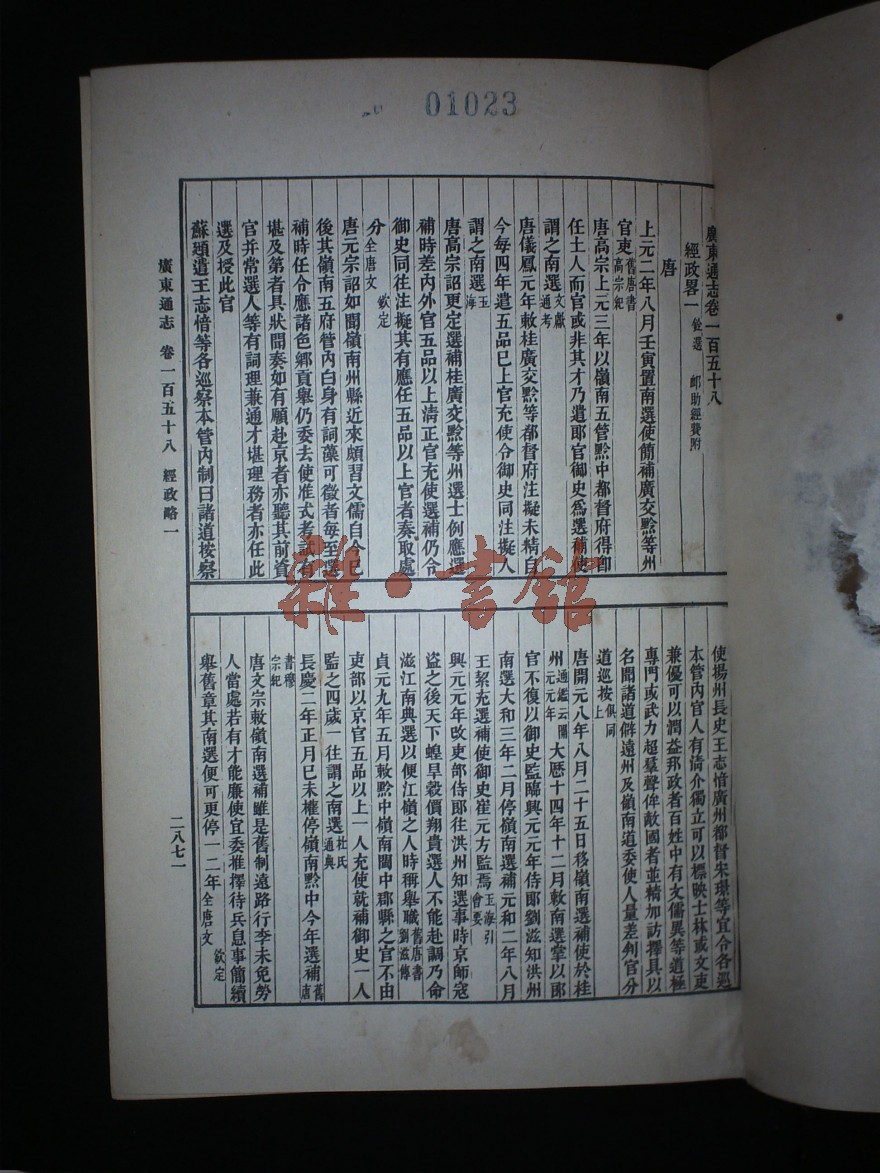 01023
廣東通志卷一百五十八
經政畧一 銓選 郵助經費附
唐
上元二年八月壬寅置南選使簡補廣交黔等州
官吏 舊唐書高宗紀
唐高宗上元三年以嶺南五管黔中都督府得卽
任土人而官或非其才乃遣郎官御史爲選補使
謂之南選 文獻通考
唐儀鳳元年敕桂廣交黔等都督府注擬未精自
今每四年遣五品已上官充使令御史同注擬人
謂之南選 玉海
唐高宗詔更定選補桂廣交黔等州選士例應選
補時差內外官五品以上淸正官充使選補仍令
御史同往注擬其有應任五品以上官者奏取處
分 全唐文 欽定
唐元宗詔如聞嶺南州縣近來頗習文儒自今已
後其嶺南五府管內白身有詞藻可徵者每至選
補時任令應諸色鄉貢舉仍委去使准式考試有
堪及第者具狀聞奏如有願赴京者亦聽其前資
官并常選人等有詞理兼通才堪理務者亦任此
選及授此官
蘇頲遣王志愔等各巡察本管內制曰諸道按察
使揚州長史王志愔廣州都督宋璟等宜令各巡
本管內官人有淸介獨立可以標映士林或文吏
兼優可以潤益邦政者百姓中有文儒異等道極
專門或武力超羣聲侔敵國者並精加訪擇具以
名聞諸道僻遠州及嶺南道委使人量差判官分
道巡按 俱同上
唐開元八年八月二十五日移嶺南選補使於桂
州 通鑑云開元元年 大歷十四年十二月敕南選掌以郎
官不復以御史監臨興元元年侍郎劉滋知洪州
南選大和三年二月停嶺南選補元和二年八月
王絜充選補使御史崔元方監焉 玉海引會要
興元元年改吏部侍郎往洪州知選事時京師寇
盜之後天下蝗旱穀價翔貴選人不能赴調乃命
滋江南典選以便江嶺之人時稱舉職 舊唐書劉滋傳
貞元九年五月敕黔中嶺南閩中郡縣之官不由
吏部以京官五品以上一人充使就補御史一人
監之四歲一往謂之南選 杜氏通典
長慶二年正月已未權停嶺南黔中今年選補 舊唐
書穆宗紀
唐文宗敕嶺南選補雖是舊制遠路行李未免勞
人當處若有才能廉使宜委推擇待兵息事簡續
舉舊章其南選便可更停一二年 全唐文 欽定
廣東通志 卷一百五十八 經政略一
二八七一
雜·書館